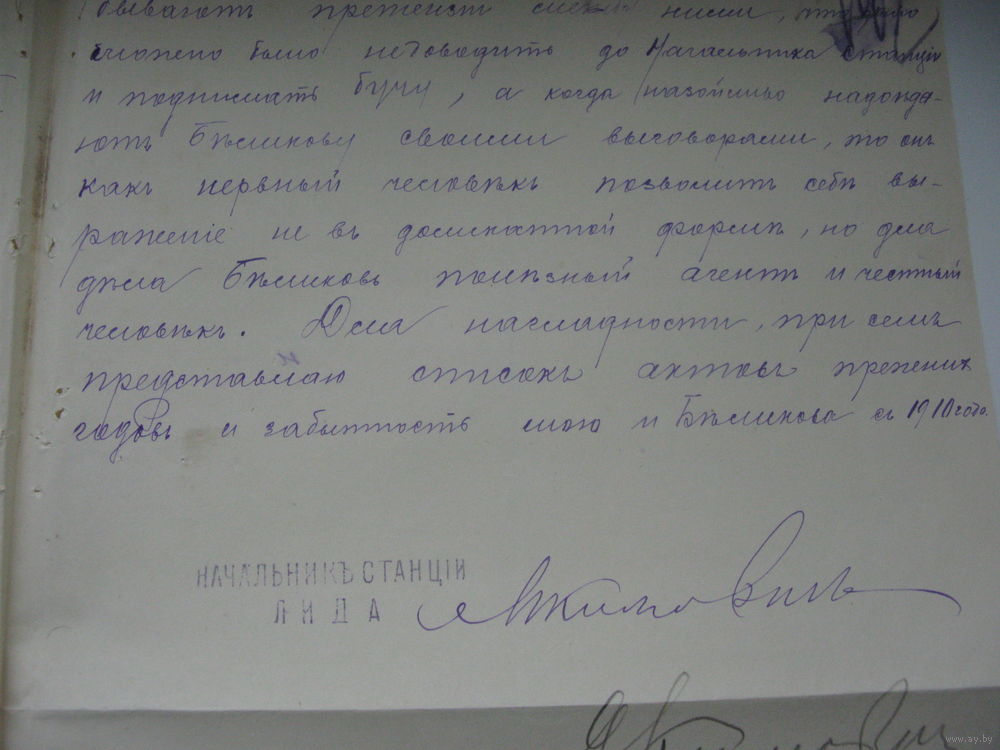 бываютъ претенсіи ними, что
можно было недоводить до Начальника Станціи
и поднимать бучу, а когда назойливо надоѣда-
ютъ Бѣликову своими выговорами, то онъ
какъ нервный человѣкъ позволитъ себѣ вы-
раженіе не въ деликатной формѣ, но для
дѣла Бѣликовъ полезный агентъ и честный
человѣкъ. Для наглядности, при семъ
представляю списокъ актовъ прежнихъ
годовъ и забытость мою и Бѣликова съ 1910 года.
НАЧАЛЬНИКЪ СТАНЦІИ
ЛИДА
www.ay.by